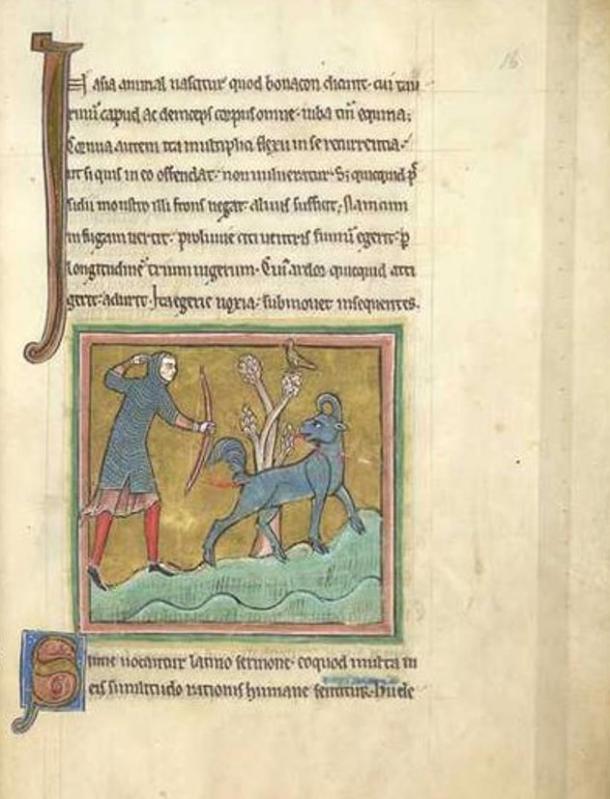 16
In asia animal nascitur quod bonacon dicunt. cui tau
rinū capud ac deinceps corpus omne. iuba tn̄ equina;
Cornua autem ita multiplici flexu in se recurrentia.
ut si quis in eo offendat. non uulneratur. S; quicquid p̄
sidii monstro illi frons negat. aluus sufficit; Nam cum
in fugam uertit. proluuie citi uentris fumū egerit. ꝑ
longitudinē trium iugerum. Cui' ardor quicquid atti
gerit. adurit. Ita egerie noxia. submouet insequentes.
Simie uocantur latino sermone. eo quod multa in
eis similitudo rationis humane sentitur.